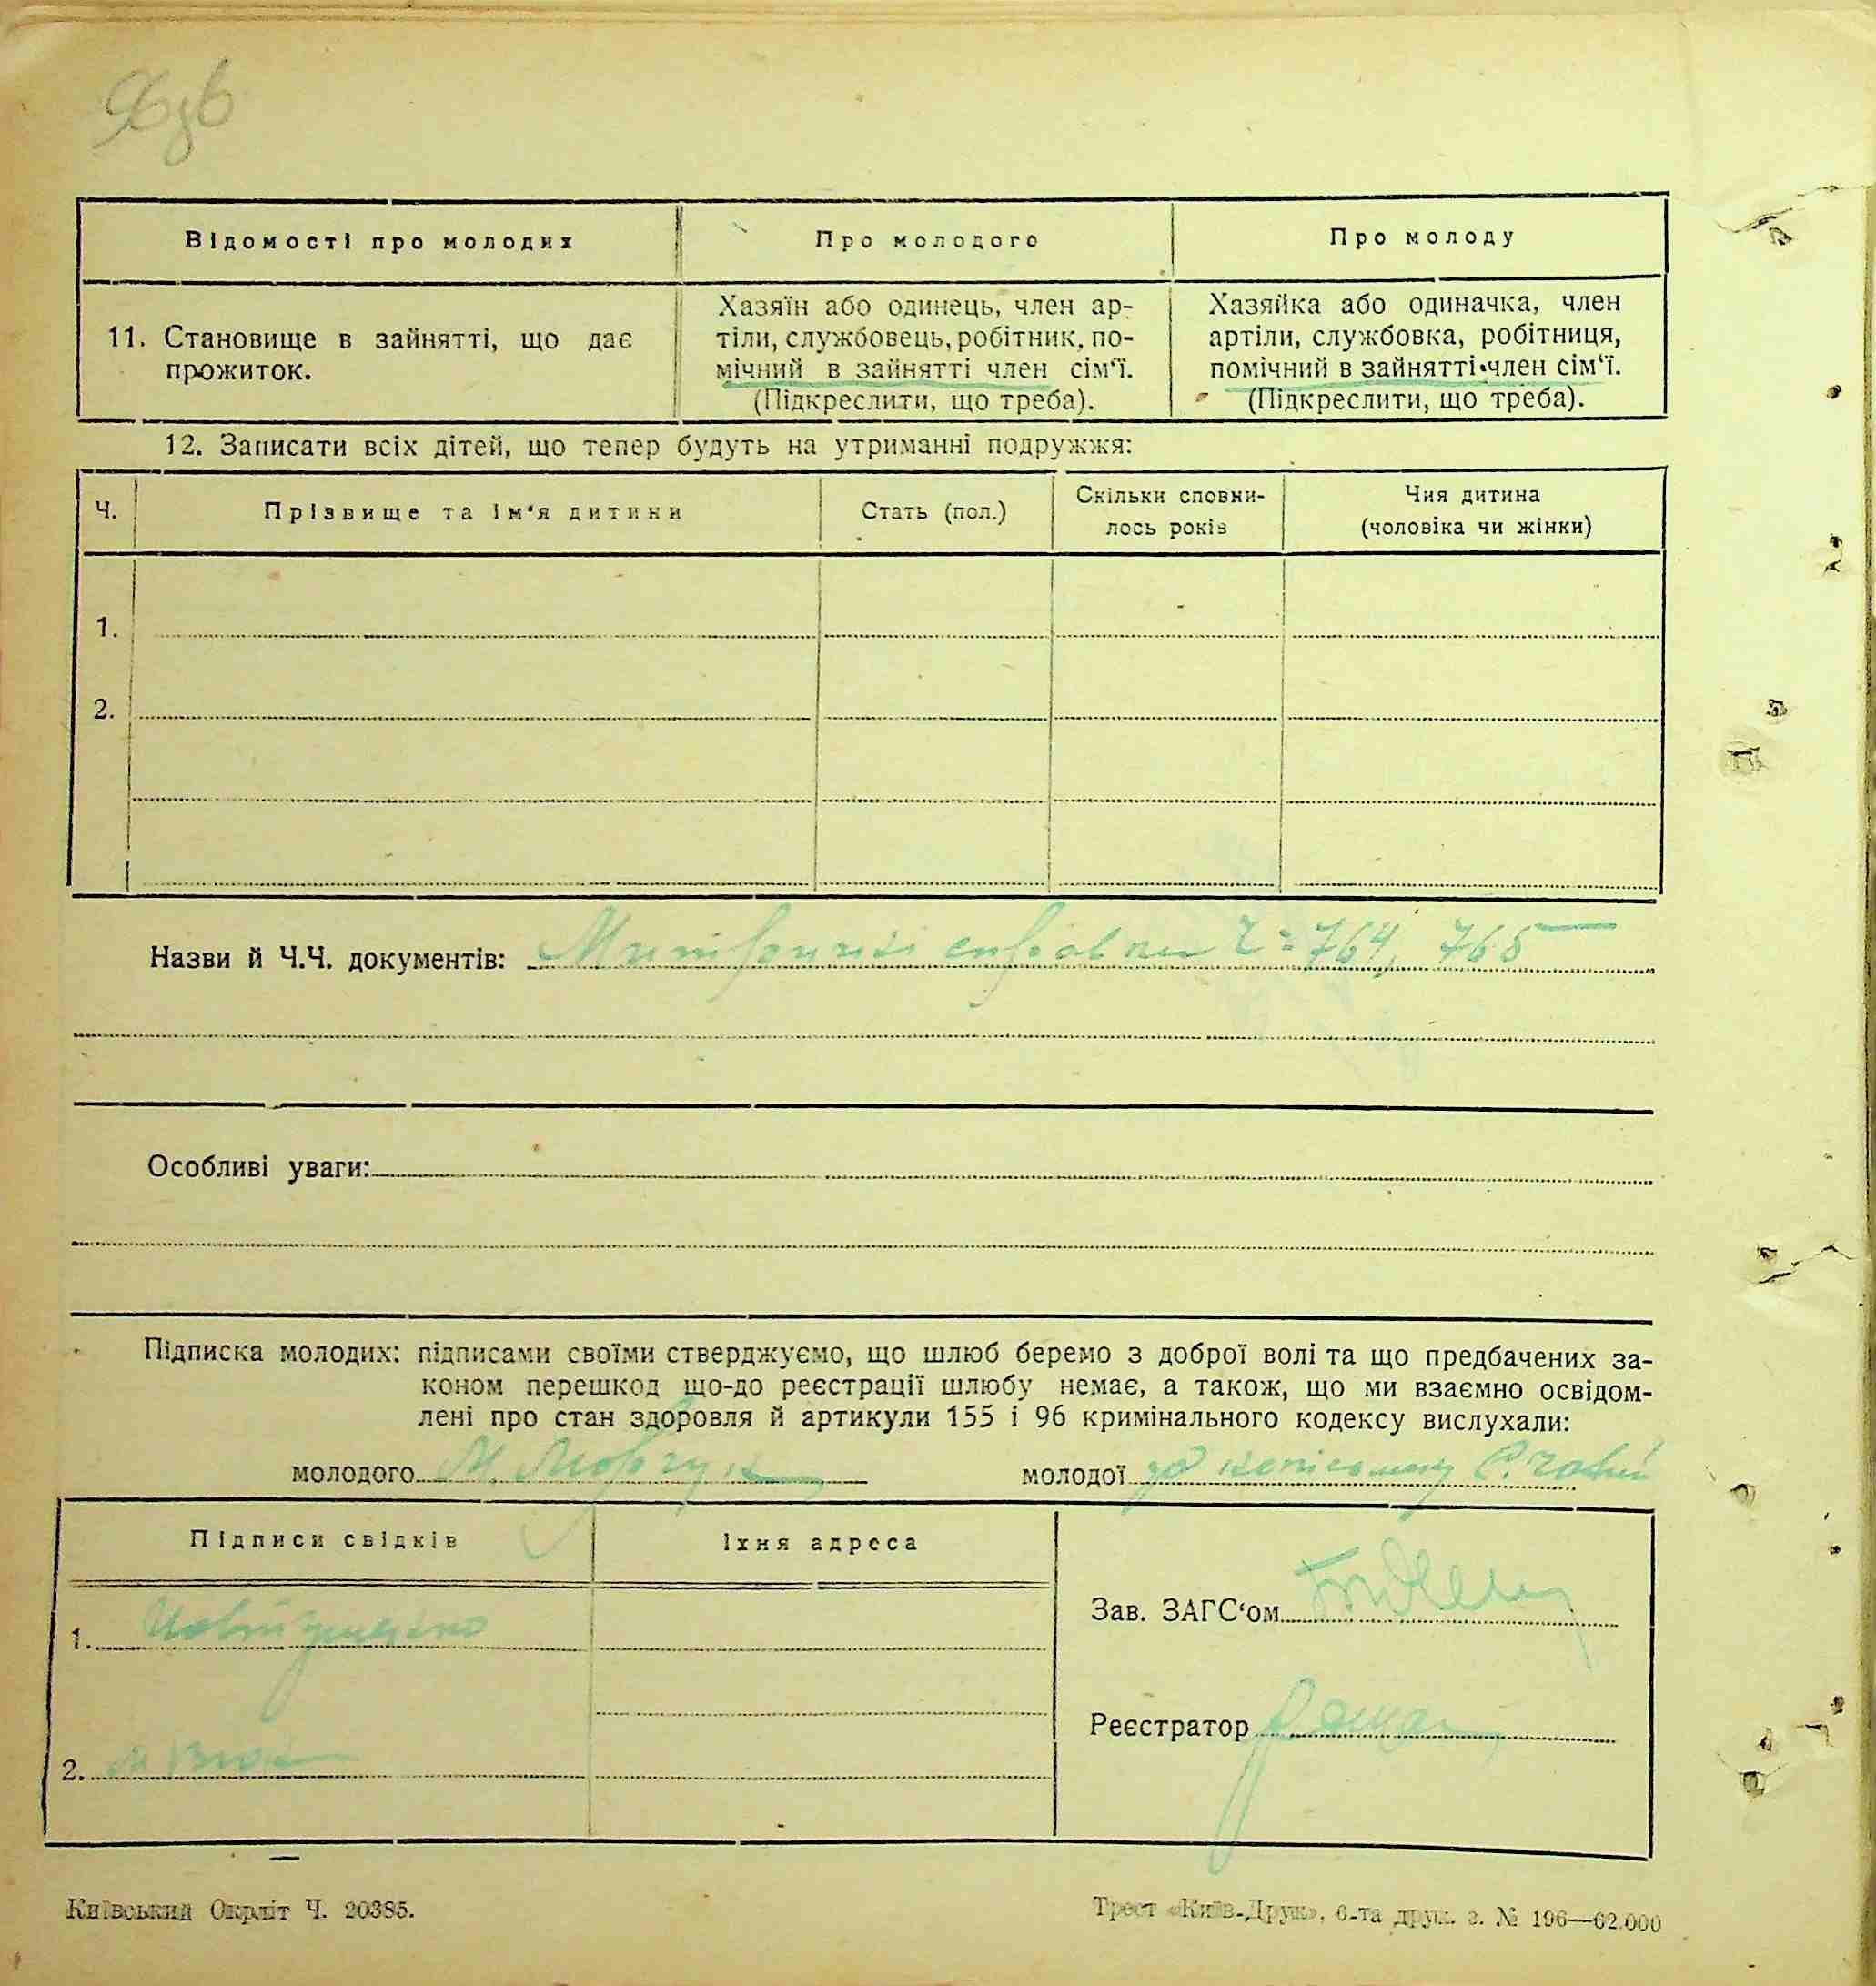 96зв
Відомості про молодих
Про молодого
Про молоду
11. Становище в зайнятті, що дає
прожиток.
Хазяїн або одинець, член ар-
тіли, службовець, робітник, по-
мічний в зайнятті член сім'ї.
(Підкреслити, що треба).
Хазяйка або одиначка, член
артіли, службовка, робітниця,
помічний в зайнятті член сім'ї.
(Підкреслити, що треба).
12. Записати всіх дітей, що тепер будуть на утриманні подружжя:
Ч.
Прізвище та ім'я дитини
Стать (пол.)
Скільки сповни-
лось років
Чия дитина
(чоловіка чи жінки)
1.
2.
Назви й Ч.Ч. документів: справки Ч=764, 765
Особливі уваги:
Підписка молодих: підписами своїми стверджуємо, що шлюб беремо з доброї волі та що предбачених за-
коном перешкод що-до реєстрації шлюбу немає, а також, що ми взаємно освідом-
лені про стан здоровля й артикули 155 і 96 кримінального кодексу вислухали:
молодого
молодої
Підписи свідків
Їхня адреса
1.
2.
Зав. ЗАГС'ом
Реєстратор
Київський Окрліт Ч. 20385.
Трест «Київ-Друк», 6-та друк. з. № 196—62.000